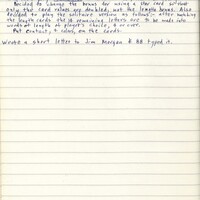 Decided to change the bonus for using a star card so that
only the card values are doubled, not the length bonus. Also
decided to play the solitaire version as follows: after making
the length cards the 18 remaining letters are to be made into
words of length of player's choice, 4 or over.
Put contact, + rules, on the cards.
Wrote a short letter to Jim Morgan & BB typed it.